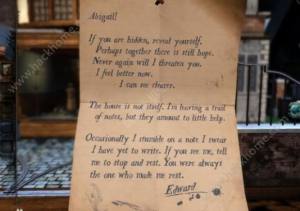 Abigail!
If you are hidden, reveal yourself.
Perhaps together there is still hope.
Never again will I threaten you.
I feel better now.
I can see clearer.
The house is not itself. I'm having a trail
of notes, but they amount to little help.
Occasionally I stumble on a note I swear
I have yet to write. If you see me, tell
me to stop and rest. You were always
the one who made me rest.
Edward